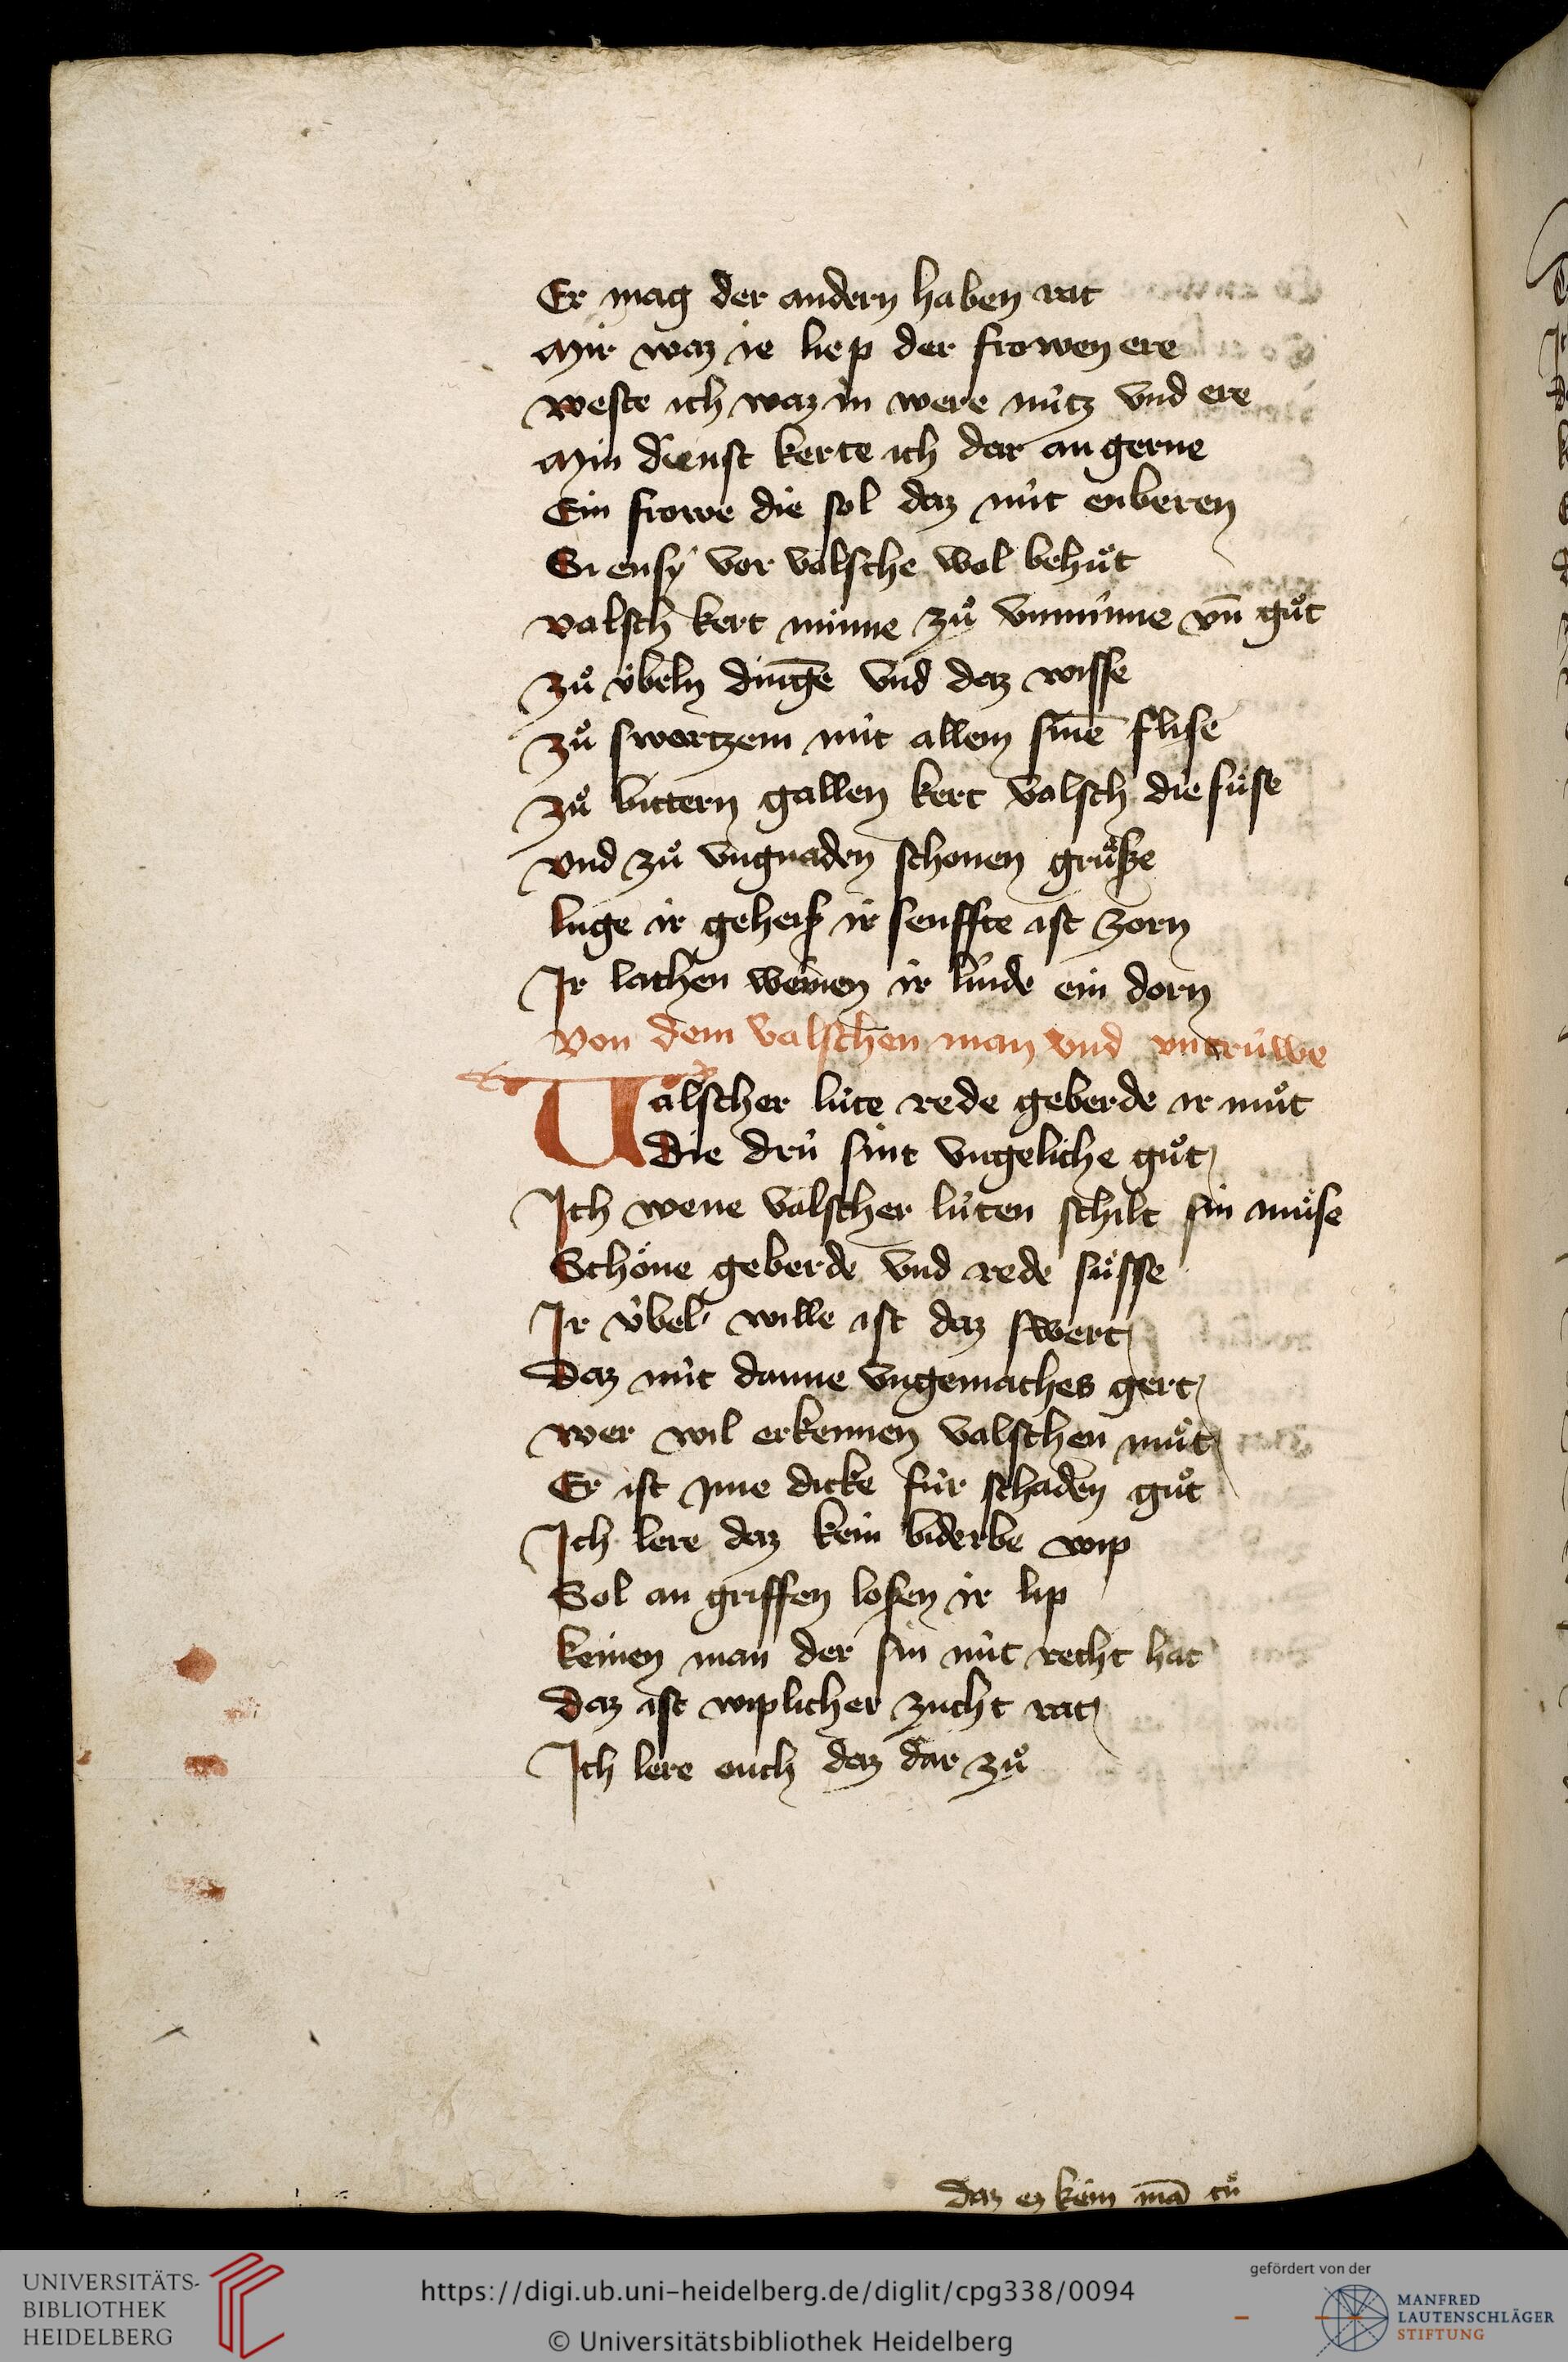 Er mag der andern haben rat
Mir waz ie liep der frowen ere
Weste ich waz in were nu̍tz vnd ere
Min dienst kerte ich dar an gerne
Ein frowe die sol daz nu̍t enberen
Si ensy vor valsche wol behuͦt
Valsch kert minne zuͦ vnminne vn̄ guͦt
Zuͦ v̍beln dinḡe vnd daz wisse
Zuͦ swartzem mit allem sinē flise
Zuͦ bittern gallen kert valsch die suͤse
Vnd zuͦ vngnaden schonen gruͤsze
Luge ir geheisz ir senffte ist zorn
Ir lachen weinen ir linde ein dorn
Von dem valschen man vnd vntru̍we
Valscher lu̍te rede geberde ir muͦt
Die dru̍ sint vngeliche guͦt
Ich wene valscher lu̍ten schilt sin muͤse
Schoͤne geberde vnd rede suͤsse
Ir v̍bel wille ist daz swert
Daz nu̍t danne vngemaches gert
Wer wil erkennen valschen muͦt
Er ist yme dicke fu̍r schaden guͦt
Ich lere daz kein biderbe wip
Sol an griffen losen ir lip
Keinen man der sin nu̍t recht hat
Daz ist wiplicher zucht rat
Ich lere ouch daz dar zuͦ
Daz ez kein mā tuͦ
UNIVERSITÄTS-
BIBLIOTHEK
HEIDELBERG
https://digi.ub.uni-heidelberg.de/diglit/cpg338/0094
© Universitätsbibliothek Heidelberg
gefördert von der
MANFRED
LAUTENSCHLÄGER
STIFTUNG